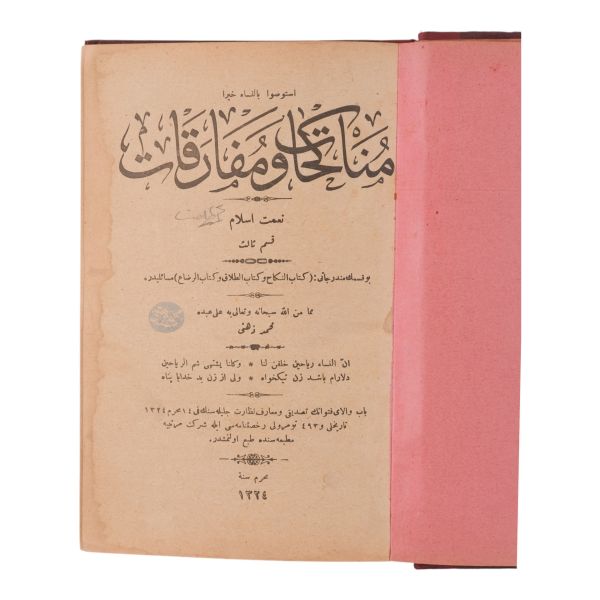 استوصوا بالنساء خيرا
مُناكحات ومُفارقات
نعمت اسلام
قسم ثالث
بو قسمك مندرجاتى : (كتاب النكاح وكتاب الطلاق وكتاب الرضاع) مسائليدر.
مما من الله سبحانه وتعالى به على عبده
محمد ذهنى
انّ النساء رياحين خلقن لنا * وكلنا يشتهى شم الرياحين
دلارام باشد زن نيكخواه * ولى از زن بد خدايا پناه
باب والاى فتواناك تصديقى ومعارف نظارت جليله سنك فى ١٤ محرم ١٣٢٤
تاريخلى و ٤٩٣ نومرولى رخصتنامه سى ايله شركت مرتبيه
مطبعه سنده طبع اولنمشدر.
محرم سنة
١٣٢٤